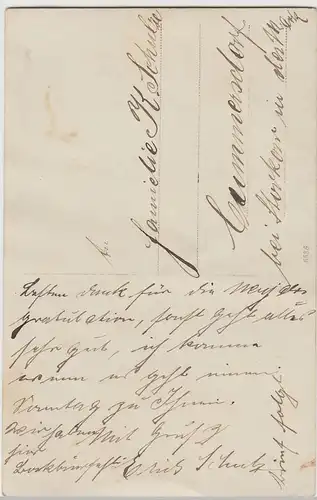 An
Familie K. Schulz
Cummersdorf
bei Storkow in der Mark
Besten Dank für die Neujahrs
gratulation, sonst geht alles
sehr gut, ich komme
wenn es geht einen
Sonntag zu Ihnen.
Mit Gruß
Erich Schulz
Brief folgt.